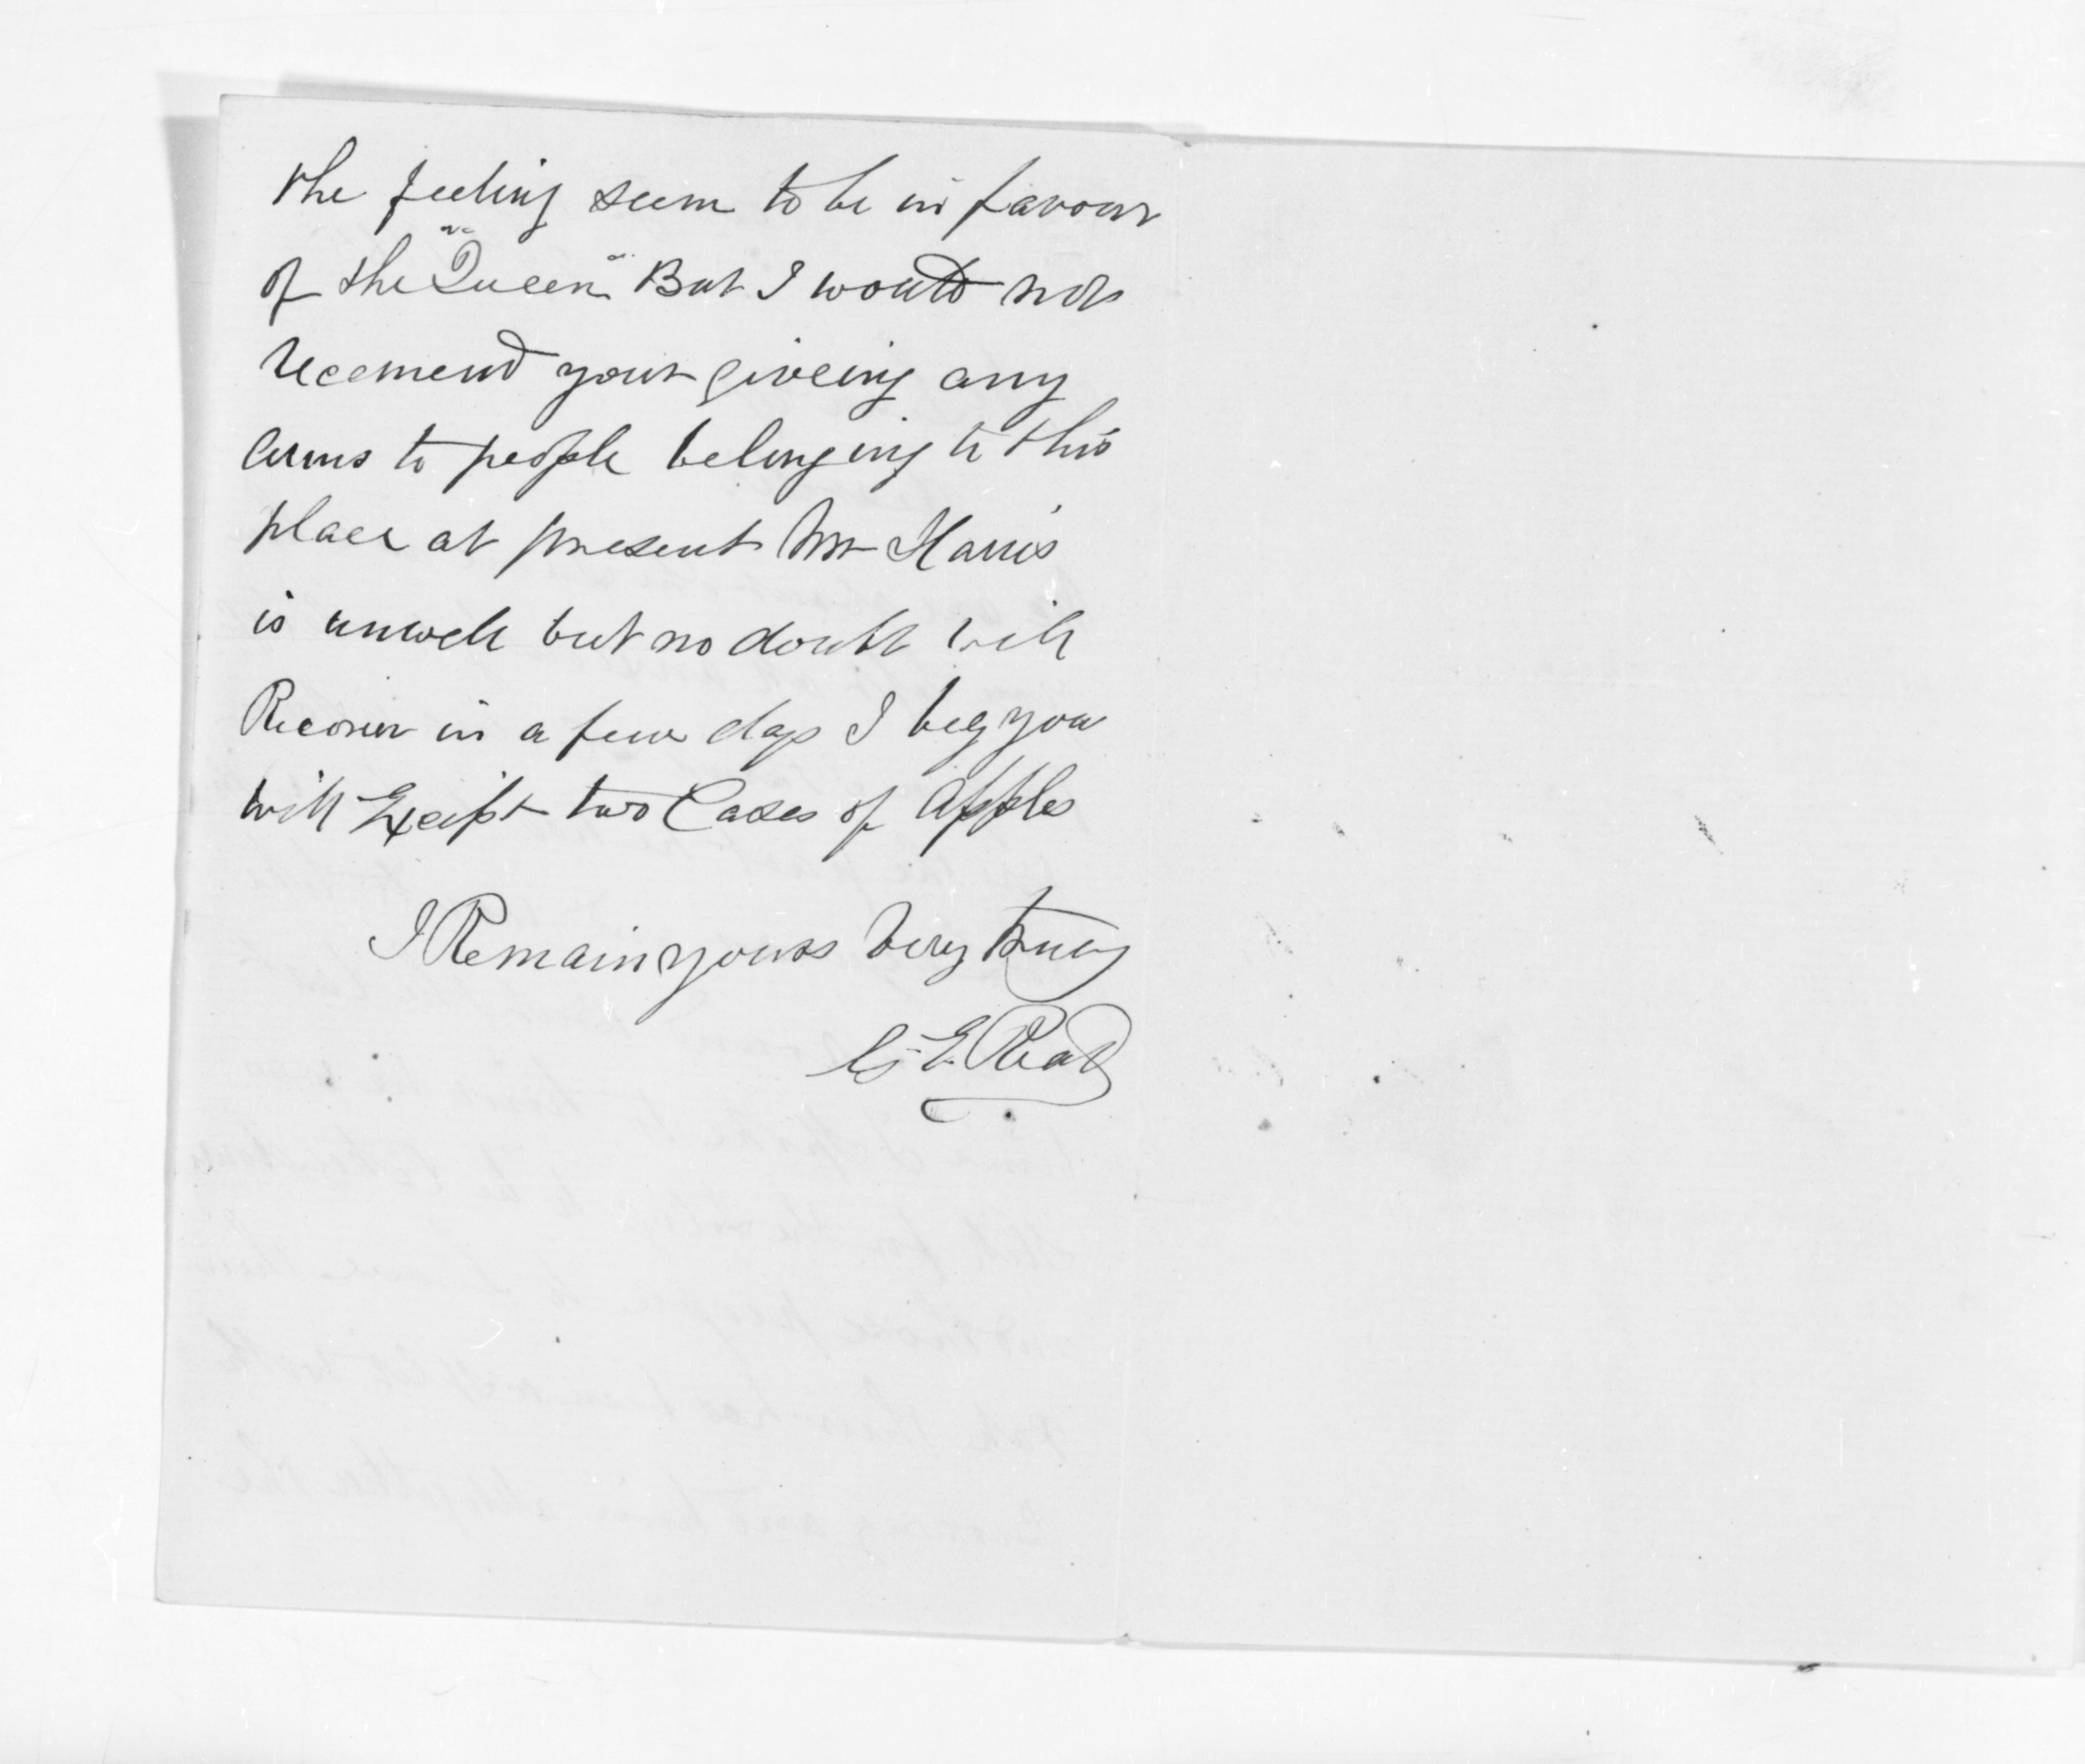 the feeling seem to be in favour
of the "Queen" But I would not
recemend your giveing any
arms to people belonging to this
place at present Mr Harris
is unwell but no doubt will
Recover in a few days I beg you
will Excipt two Cases of Apples
I Remain yours very truly
G. E. Read